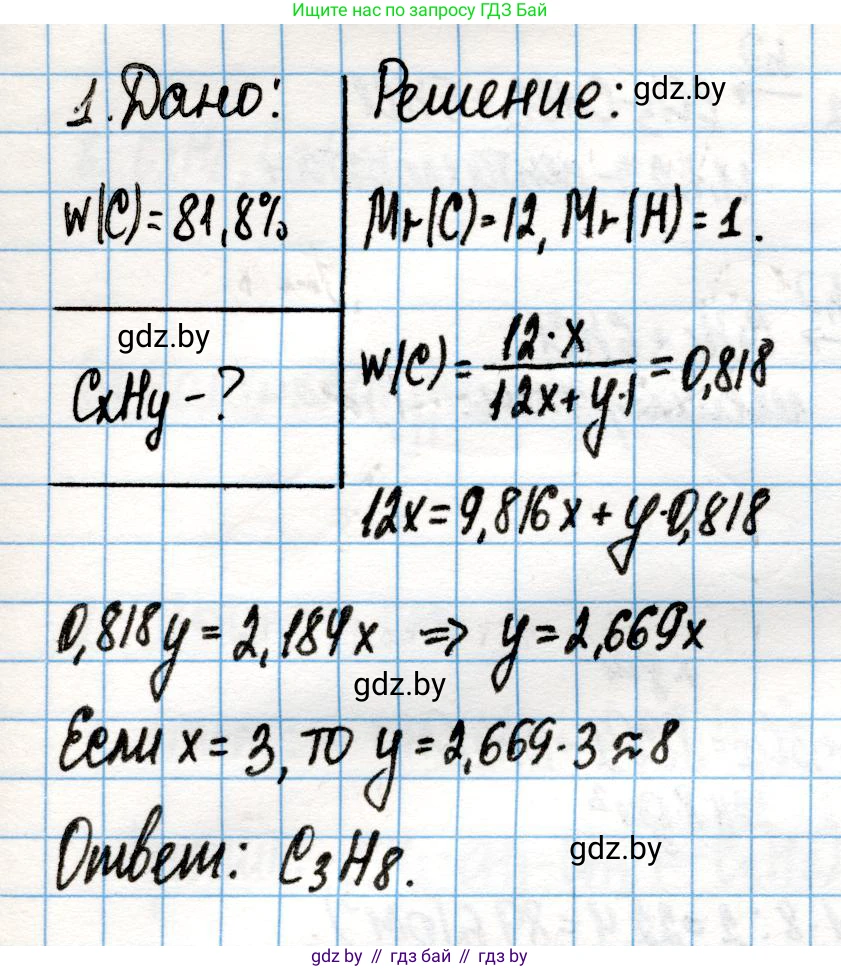 Ищите нас по запросу ГДЗ Бай
1. Дано:
Решение:
gdz.by
w(C) = 81,8%
Mr(C) = 12, Mr(H) = 1.
gdz.by
CxHy - ?
w(C) = 12·x / 12x + y·1 = 0,818
12x = 9,816x + y·0,818
0,818y = 2,184x => y = 2,669x
gdz.by
Если x = 3, то y = 2,669·3 ≈ 8
Ответ: C₃H₈.
gdz.by
gdz.by // гдз бай // gdz.by